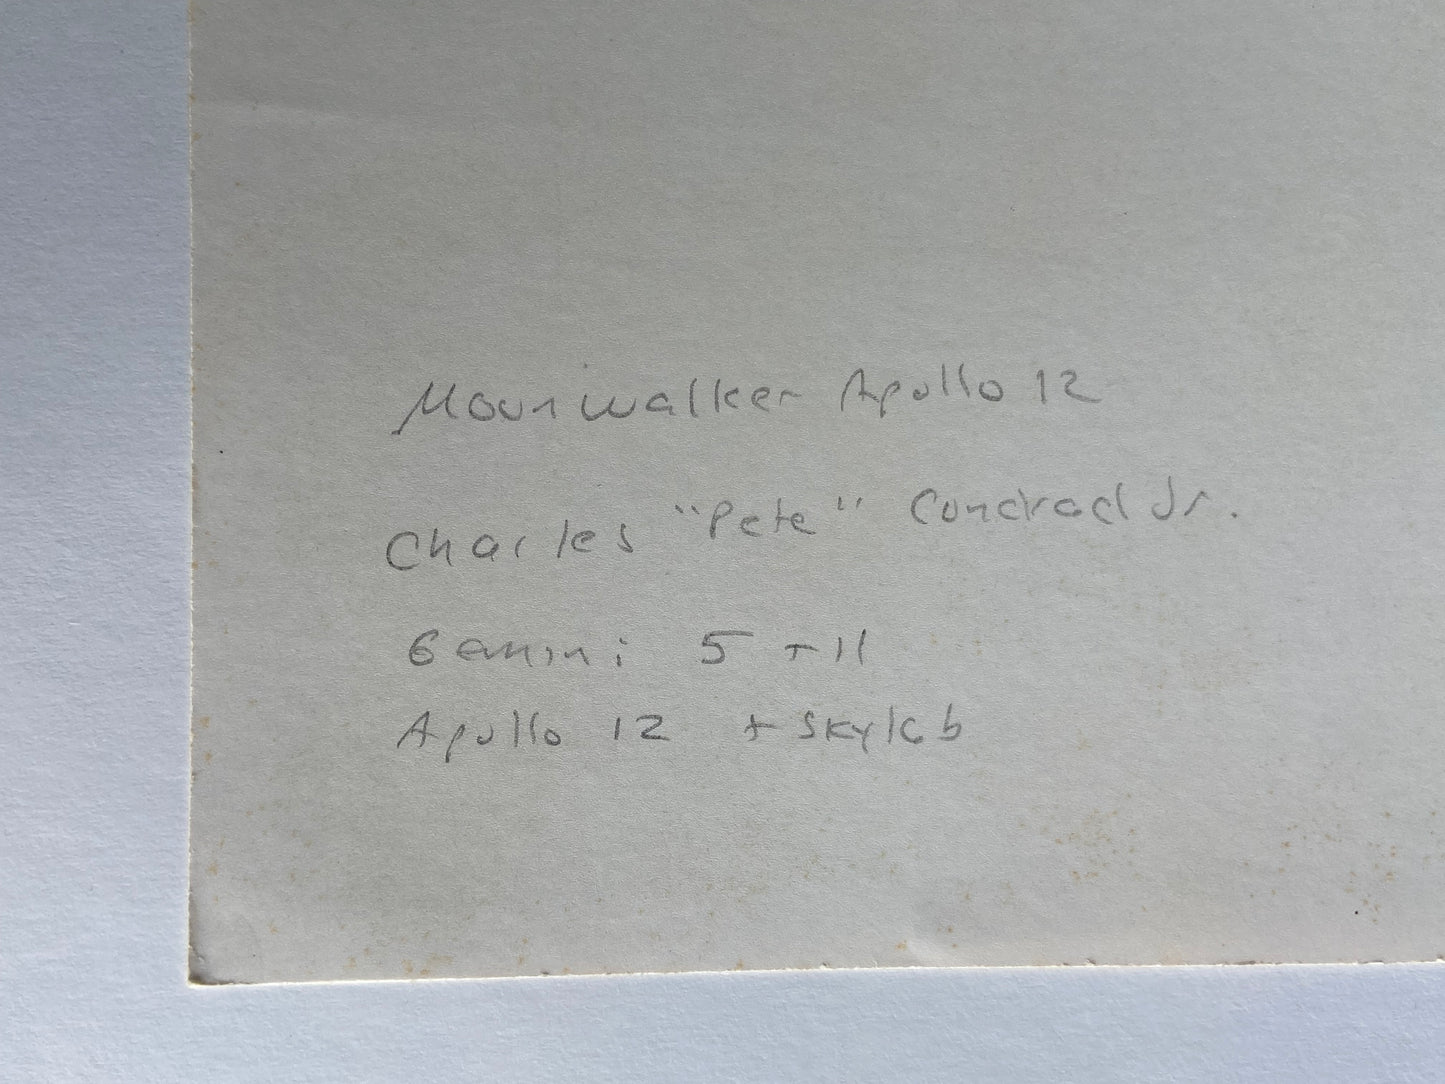 Moonwalker Apollo 12
Charles "Pete" Condrad Jr.
Gemini 5 + 11
Apollo 12 + Skylab